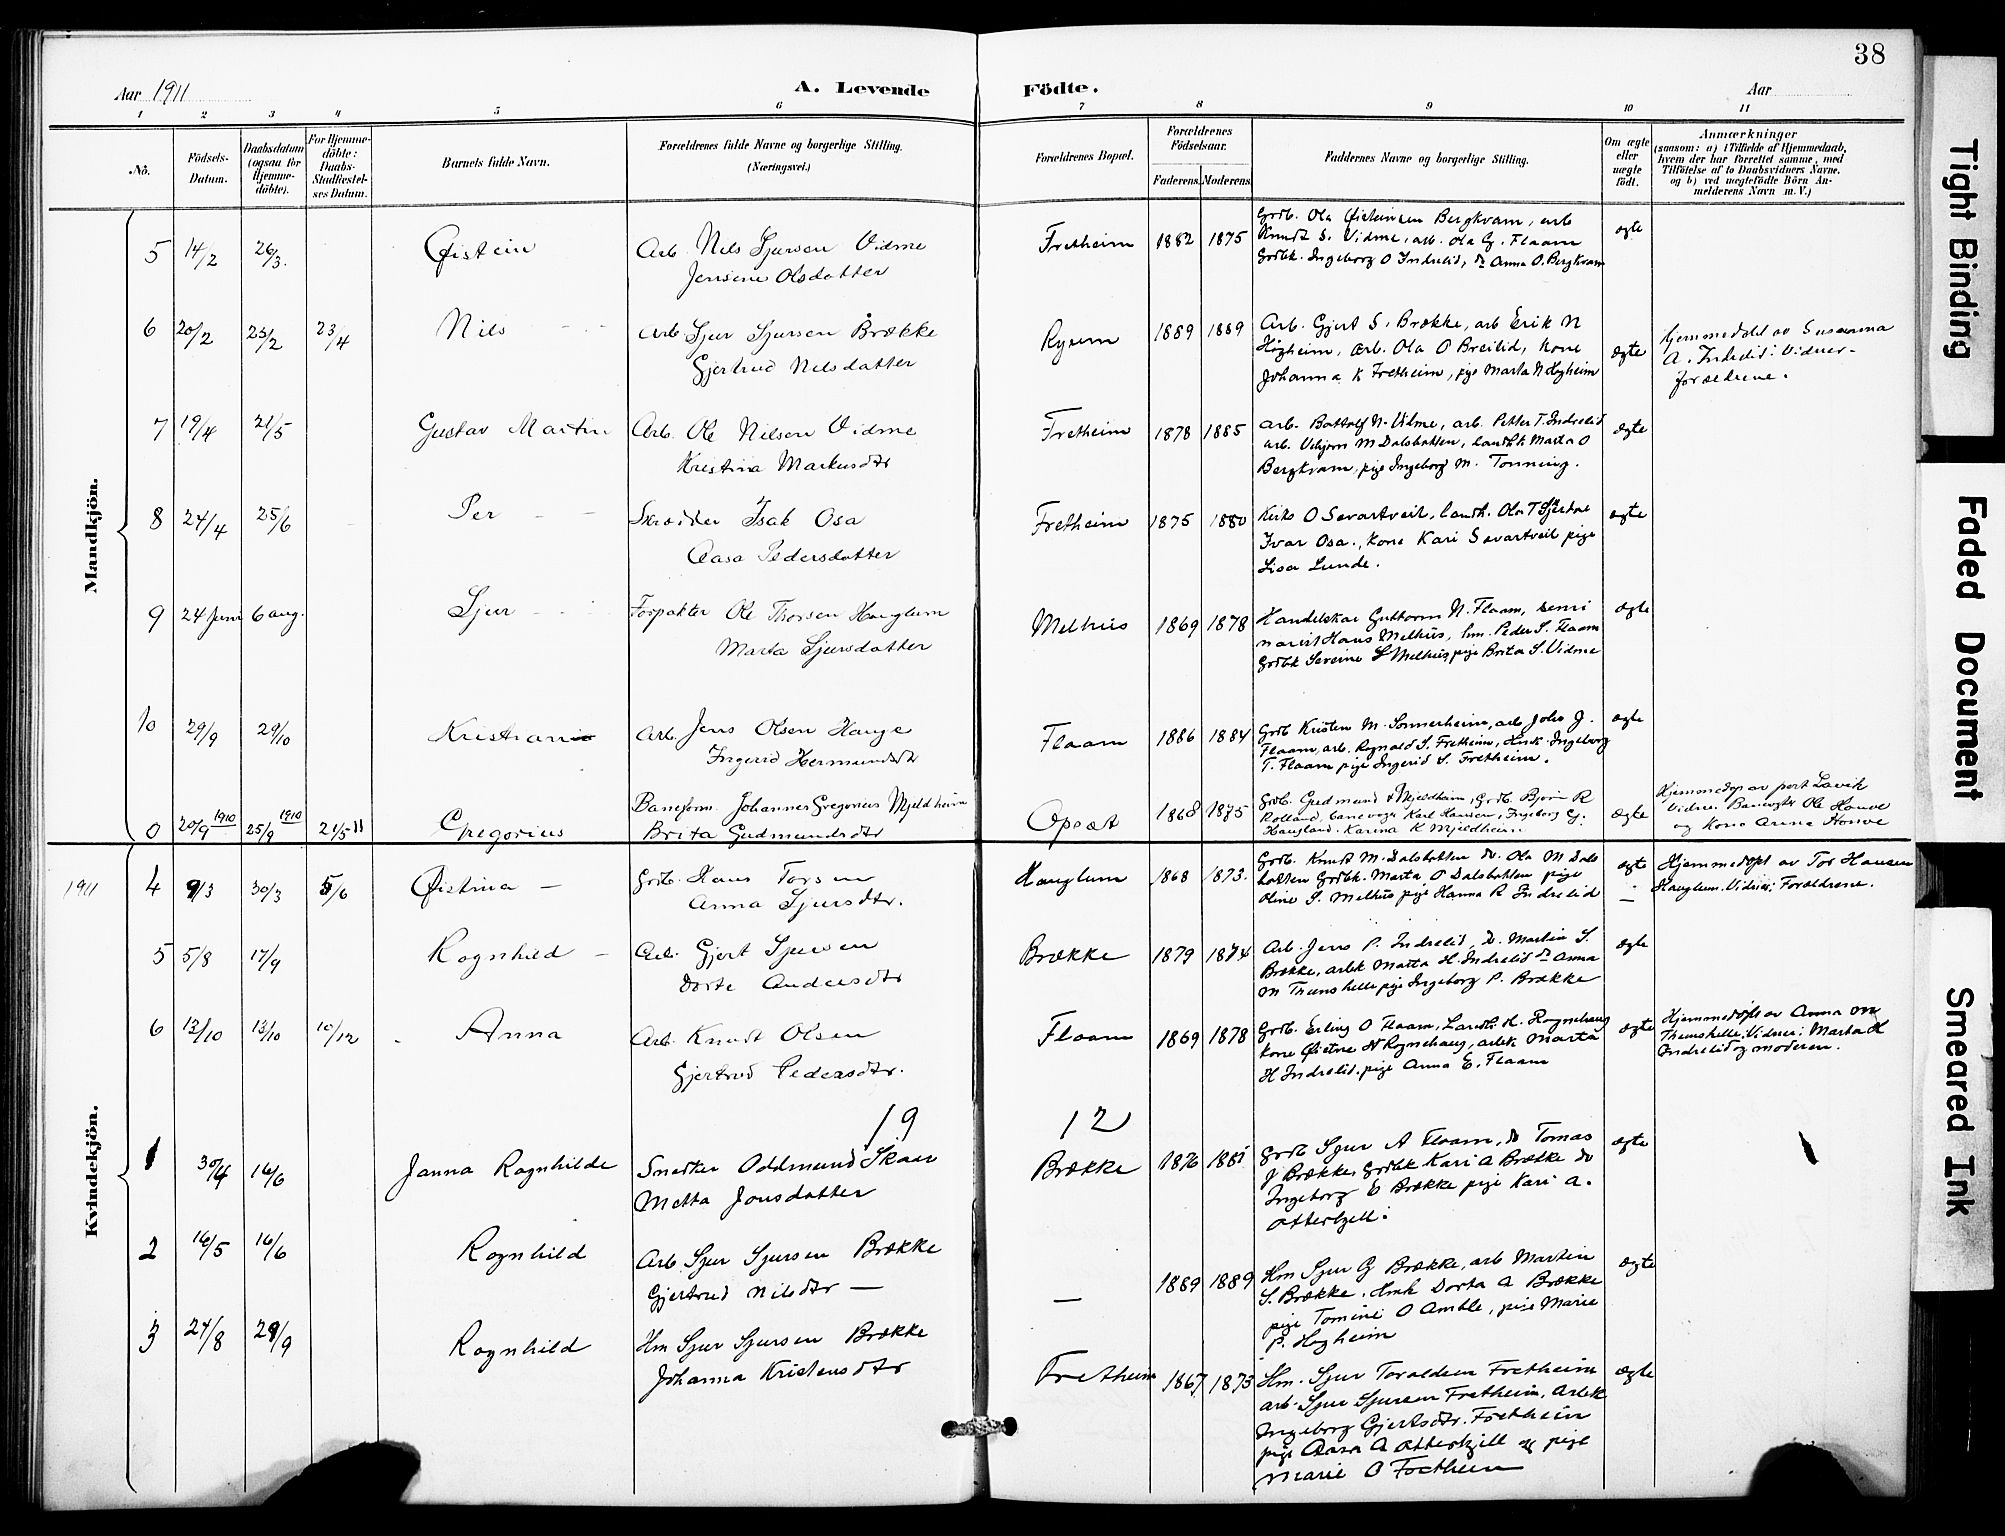 38
Aar 1911
A. Levende
Födte.
Aar
1 2 3 4 5 6 7 8 9 10 11
No.
Födsels-Datum.
Daabsdatum (ogsaa for Hjemme-döbte).
For Hjemme-döbte: Daabs-Stadfæstel-ses Datum.
Barnets fulde Navn.
Forældrenes fulde Navne og borgerlige Stilling.
(Næringsvei.)
Forældrenes Bopæl.
Forældrenes Födselsaar.
Faderens. Moderens.
Faddernes Navne og borgerlige Stilling.
Om ægte eller uægte födt.
Anmærkninger
(saasom: a) i Tilfælde af Hjemmedaab, hvem der har forrettet samme, med Tilföielse af to Daabsvidners Navne. og b) ved uægtefödte Börn An-melderens Navn m. V.)
Mandkjön.
5 14/2 26/3. Øistein Arb. Nils Sjursen Vidme
Jensine Olsdatter
Fretheim 1882 1875
Grdb. Ola Øisteinsen Bergkvam, arb
Knudt S. Vidme, arb. Ola G. Flaam
Grdbk. Ingeborg O Indrelid, do Anna O. Bergkvam
ægte
6 20/2 23/2 23/4 Nils Arb. Sjur Sjursen Brække
Gjertrud Nilsdatter
Ryum 1889 1889
Arb. Gjert S. Brække, arb Erik N
Høgheim, arb. Ola O Breilid, kone
Johanna K Fretheim, pige Marta N Høgheim
ægte
Hjemmedøbt av Susanna
A. Indrelid: Vidner-
forældrene.
7 19/4 21/5 Gustav Martin Arb. Ole Nilsen Vidme
Kristina Markusdtr
Fretheim 1878 1885
Arb. Bottolf N. Vidme, arb. Petter T. Indrelid
arb. M Dalsbotten, Marta O
Bergkvam, pige Ingeborg M. Tonning.
ægte
8 24/4 25/6 Per Skrædder Isak Osa
Aasa Pedersdatter
Fretheim 1875 1880
O Svartveit, landh. Ola T
Ivar Osa., Kone Kari Svartveit pige
Lisa Lunde.
ægte
9 24 Juni 6 aug. Sjur Forpakter Ole Thorsen Hauglum
Marta Sjursdatter
Melhus 1869 1878
Handelskar Guttorm N. Flaam, semi
narist Hans Melhus, hm. Peder S. Flaam
Grdbk Sereine S Melhus, pige Brita S. Vidme
ægte
10 29/9 29/10 Kristian Arb. Jens Olsen Hauge
Ingerid Hermundsdtr
Flaam 1886 1884
Grdb Kristen M. Sonnerheim, arb Joho J.
Flaam, arb. Rognald S. Fretheim, Ingeborg
T. Flaam pige Ingerid S. Fretheim.
ægte
0 20/9 1910 25/9 1910 21/5 11 Gregorius Baneform. Johannes Gregorius Mjeldheim
Brita Gudmundsdtr
Opsæt 1868 1875
Grdb. Gudmund Mjeldheim, Grdb. Bjørn R
Rolland, banevogt Karl Hansen, Ingeborg Gj.
Haugland. Karina K Mjeldheim
ægte
Hjemmedøp av prest Lavik
Vidner. Banevogt Ole Honve
og Kone Anna Honve
1911
Kvindekjön.
4 9/3 30/3 5/6 Øistina — Grdb. Hans Torsen
Anna Sjursdtr.
Hauglum 1868 1873.
Grdb. Knudt M. Dalsbotten do. Ola M Dals
botten Grdbk. Marta O Dalsbotten pige
Oline S. Melhus pige Hanna R Indrelid
ægte
—
Hjemmedøpt av Tor Hansen
Hauglum. Vidner: Forældrene.
5 5/8 17/9 Rognhild — Arb. Gjert Sjursen
Dorte Andersdtr
Brække 1879 1874
Arb. Jens P. Indrelid, do. Martin S.
Brække, arbk Marta H. Indrelid do Anna
M Thunshelle pige Ingeborg P. Brække
ægte
6 13/10 13/10 10/12 Anna Arb. Knudt Olsen
Gjertrud Pedersdtr.
Flaam 1869 1878
Grdb. Erling O Flaam, Landh. H. Rognehaug
kone Øistine H Rognehaug, arbk Marta
H Indrelid. pige Anna E. Flaam
ægte
Hjemmedøpt av Anna M
Thunshelle. Vidner: Marta H
Indrelid og moderen.
19 12
1 30/4 16/6 Janna Rognhilde Smedker Oddmund Skaar
Metta Jonsdatter
Brække 1876 1881
Grdb Sjur A Flaam, do Tomas
J Brække, Grdbk Kari A Brække do
Ingeborg E Brække pige Kari A.
Otterkjell.
ægte
2 16/5 16/6 Rognhild Arb. Sjur Sjursen Brække
Gjertrud Nilsdtr —
— 1889 1889
Hm Sjur G Brække, arb Martin
S. Brække. Hmk Dorta A Brække
pige Tomine O Amble, pige Marie
P. Høgheim
ægte
3 27/8 29/9 Rognhild Hm Sjur Sjursen Brække
Johanna Kristensdtr
Fretheim 1867 1873
Hm. Sjur Toraldsen Fretheim
arb. Sjur Sjursen Fretheim, Arbk
Ingeborg Gjertsdtr. Fretheim
pige Anna A Otterkjell og pige
Marie O Fretheim
ægte
Tight Binding
Faded Document
Smeared Ink